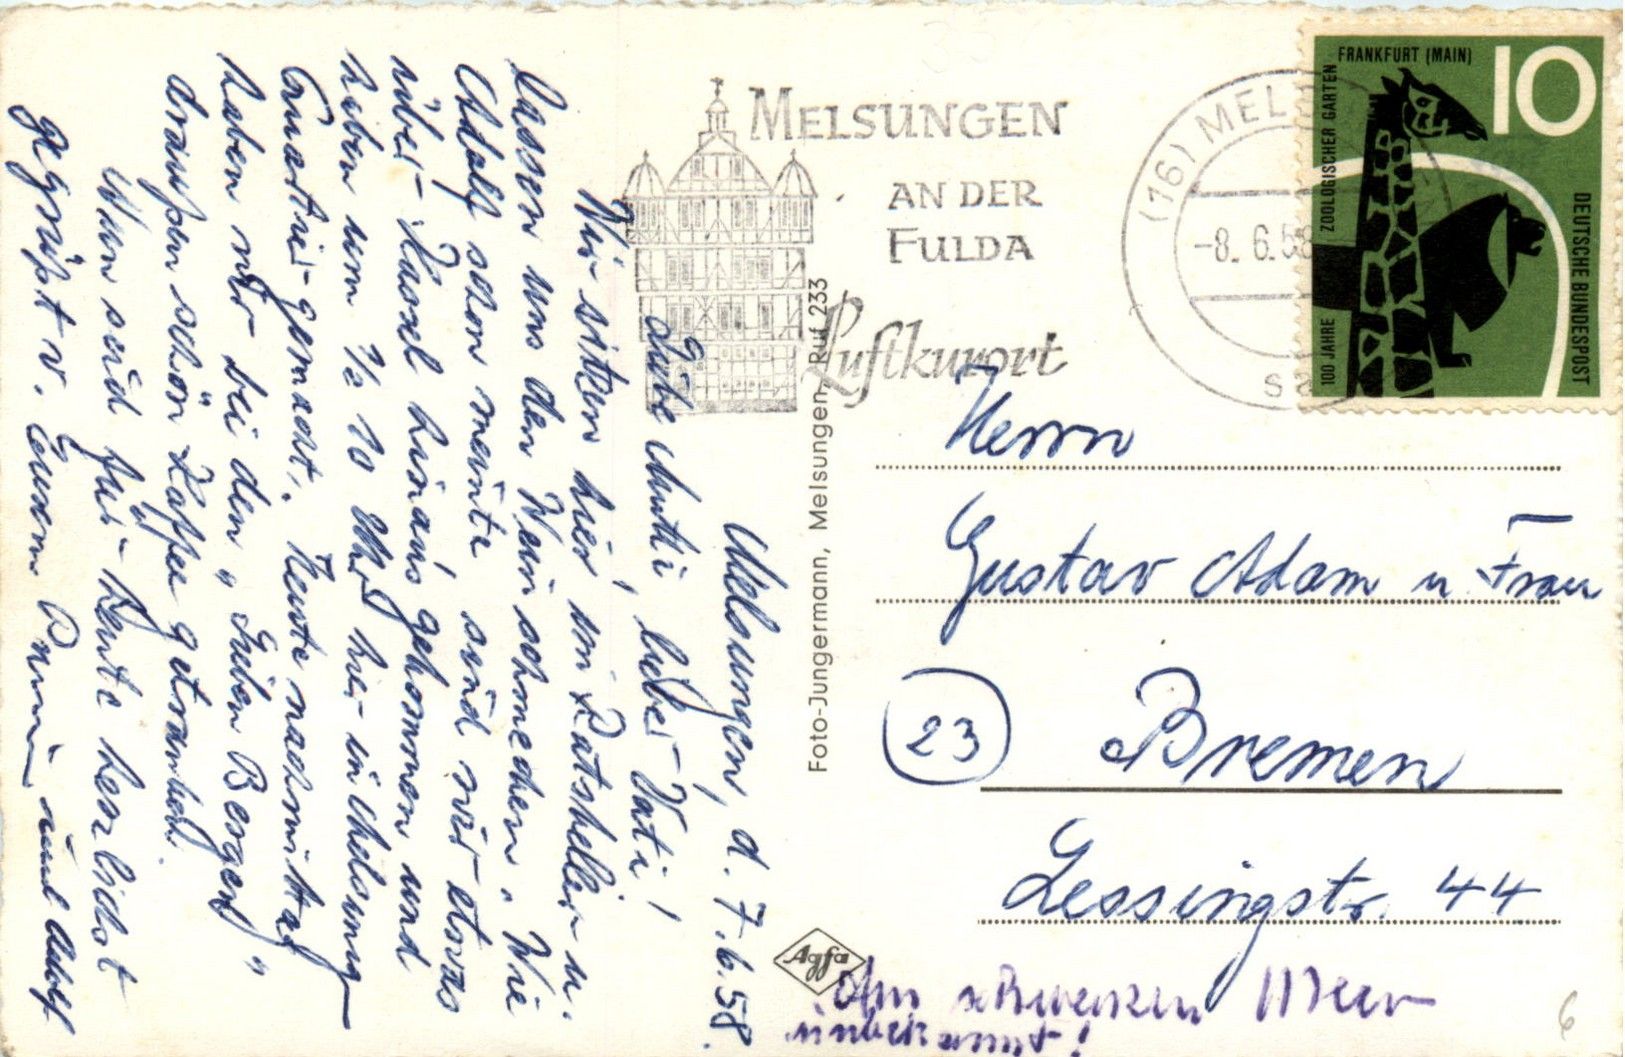 Melsungen, d. 7.6.58.
Liebe Mutti, lieber Vati!
Wir sitzen hier im Ratskeller u.
lassen uns den Wein schmecken. Wie
Adolf schon meinte sind wir etwas
über Kassel hinausgekommen und
haben um ½ 10 Uhr hier in Melsung
Quartier gemacht. Heute nachmittag
haben wir bei den "Sieben Bergen"
draußen schön Kaffee getrunken.
Nun seid für heute herzlichst
gegrüßt v. Euren
und Adolf
MELSUNGEN
AN DER
FULDA
Luftkurort
(16) MELS
-8. 6.58
FRANKFURT (MAIN)
10
100 JAHRE ZOOLOGISCHER GARTEN
DEUTSCHE BUNDESPOST
Foto-Jungermann, Melsungen, Ruf 233
Agfa
Herrn
Gustav Adam u. Frau
23
Bremen
Lessingstr. 44
Am schwarzen Meer
unbekannt!
6